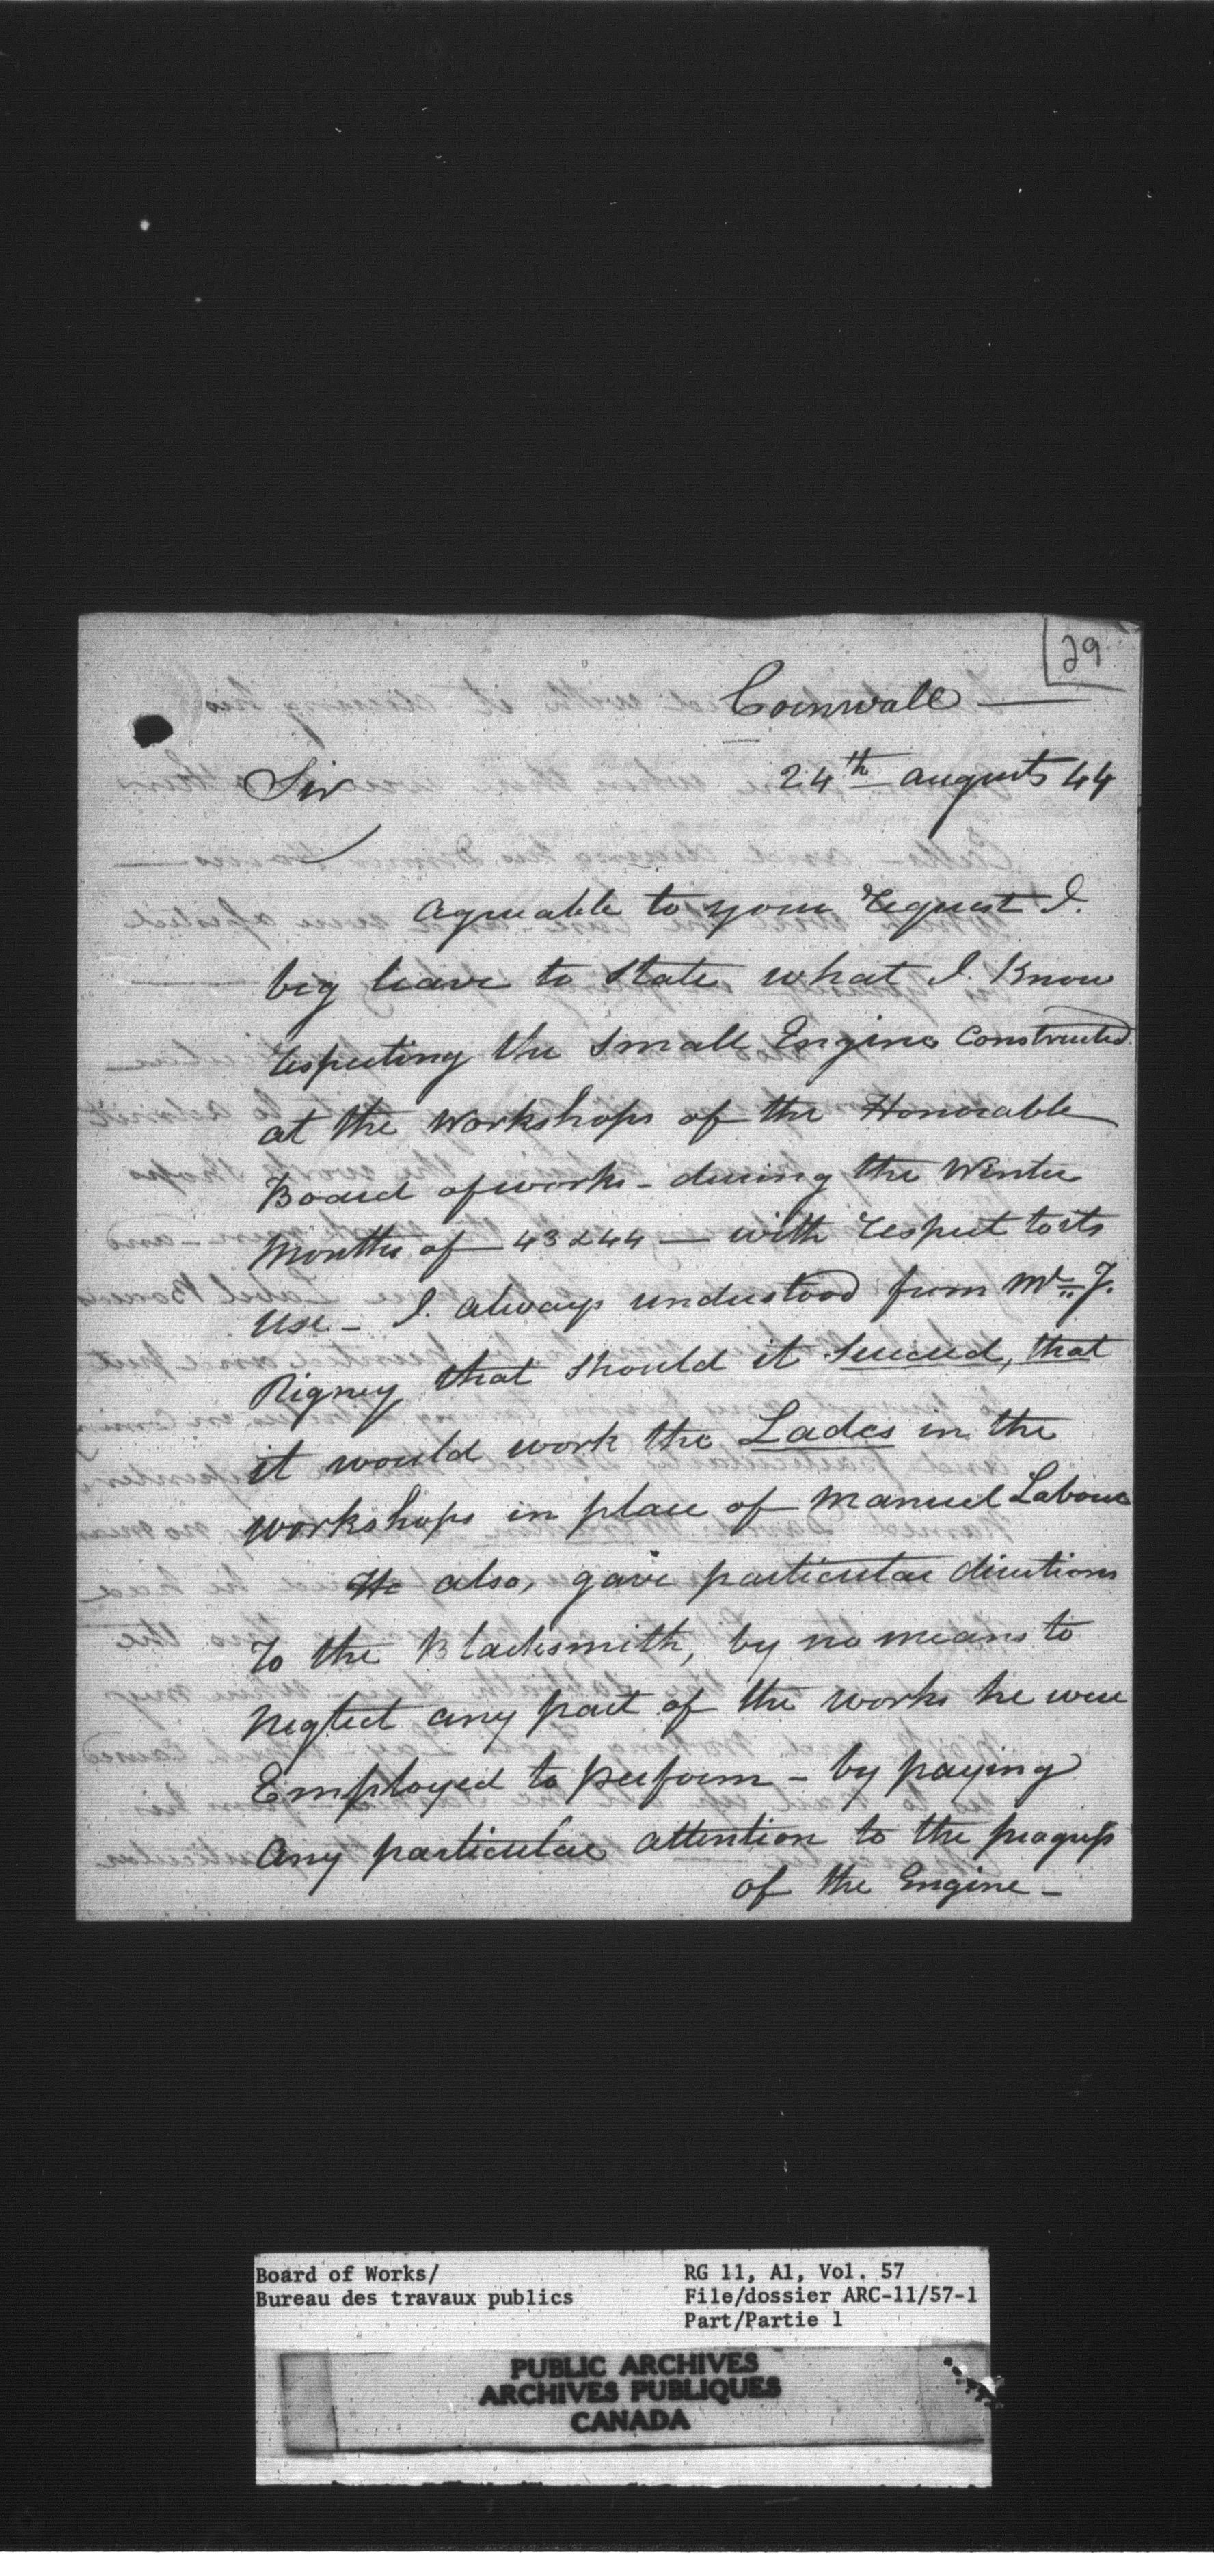 29
Cornwall —
Sir
24th august 44
agreable to your request I.
beg leave to state what I Know
respecting the small Engine Constructed
at the workshops of the Honorable
Board of works - during the Winter
Months of 43 & 44 — with respect to its
use - I. always understood from Mr. J.
Rigney that should it Succeed, that
it would work the Lades in the
workshops in place of Manuel Labour
He also, gave particular directions
To the Blacksmith, by no means to
Neglect any part of the works he were
Employed to perform - by paying
any particular attention to the progress
of the Engine -
Board of Works/
Bureau des travaux publics
RG 11, A1, Vol. 57
File/dossier ARC-11/57-1
Part/Partie 1
PUBLIC ARCHIVES
ARCHIVES PUBLIQUES
CANADA